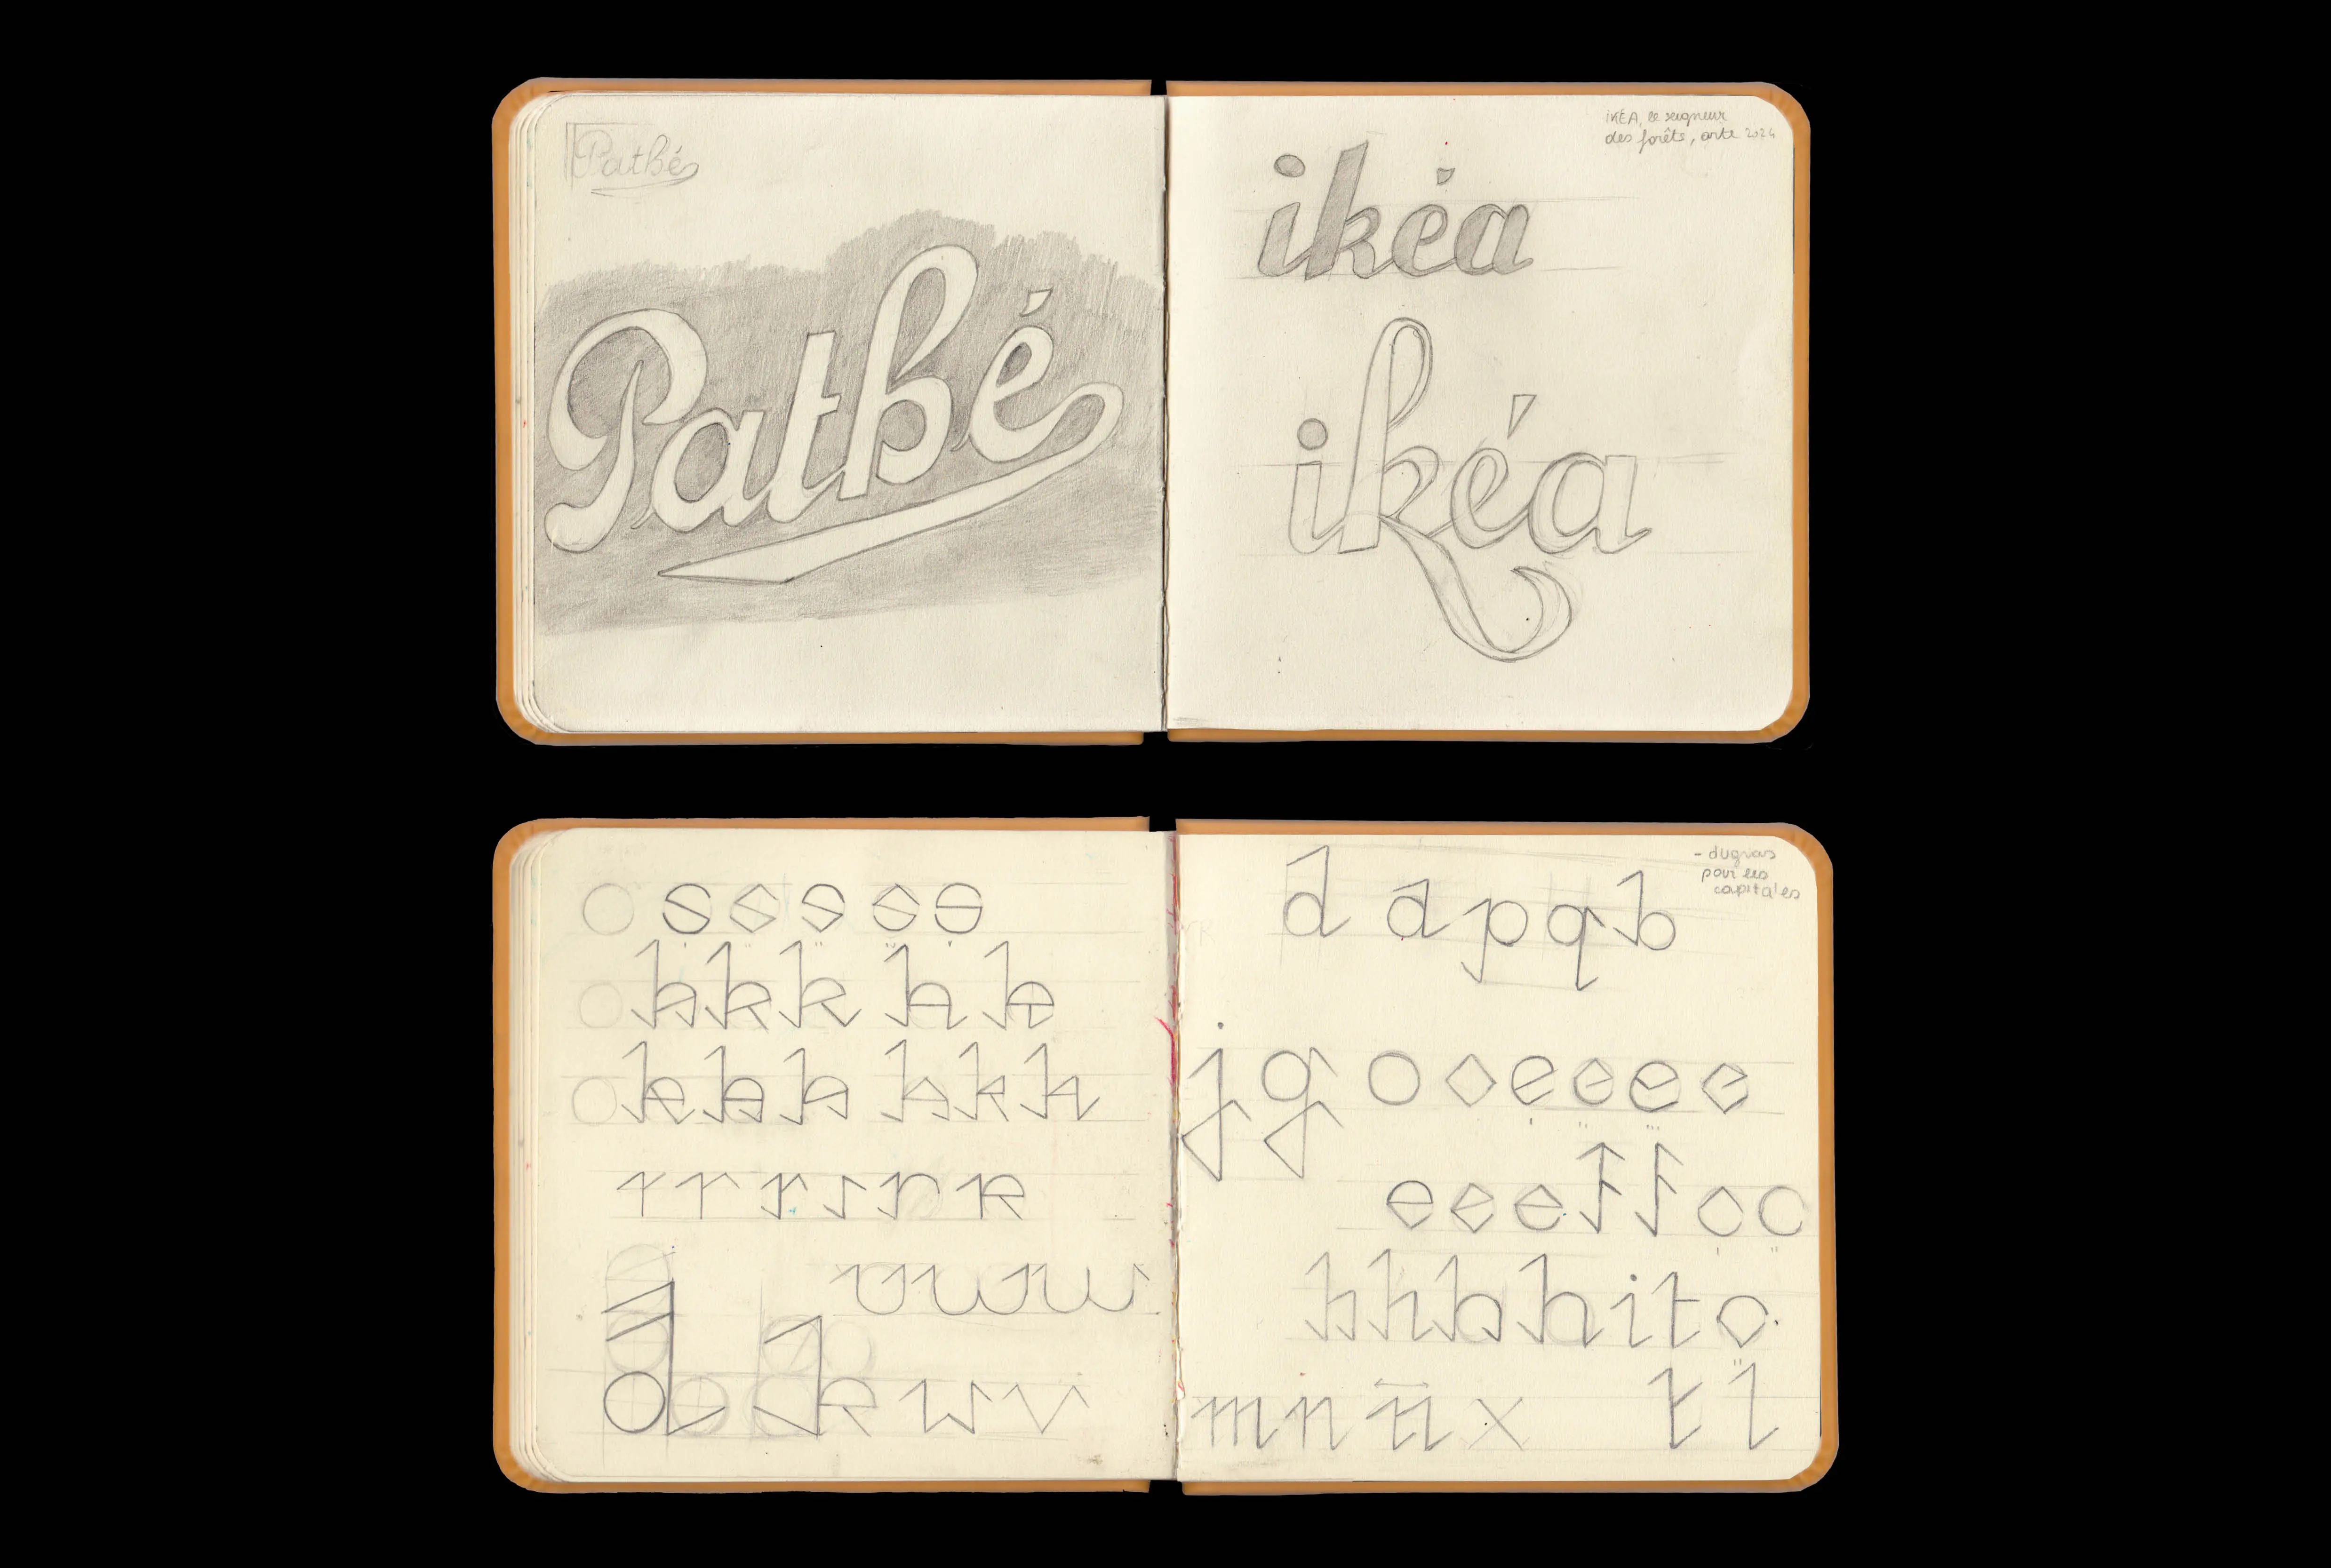 Pathé
Pathé
IKÉA, le seigneur
des forêts, arte 2024
ikéa
ikéa
s s s s s
k k k k k
k k k k k k
r r r r r R
u w w
d k w v
d a p q b
- du gras
pour les
capitales
j g o o e e e e
e e e f f c c
h h h h i t c
m n n x t l